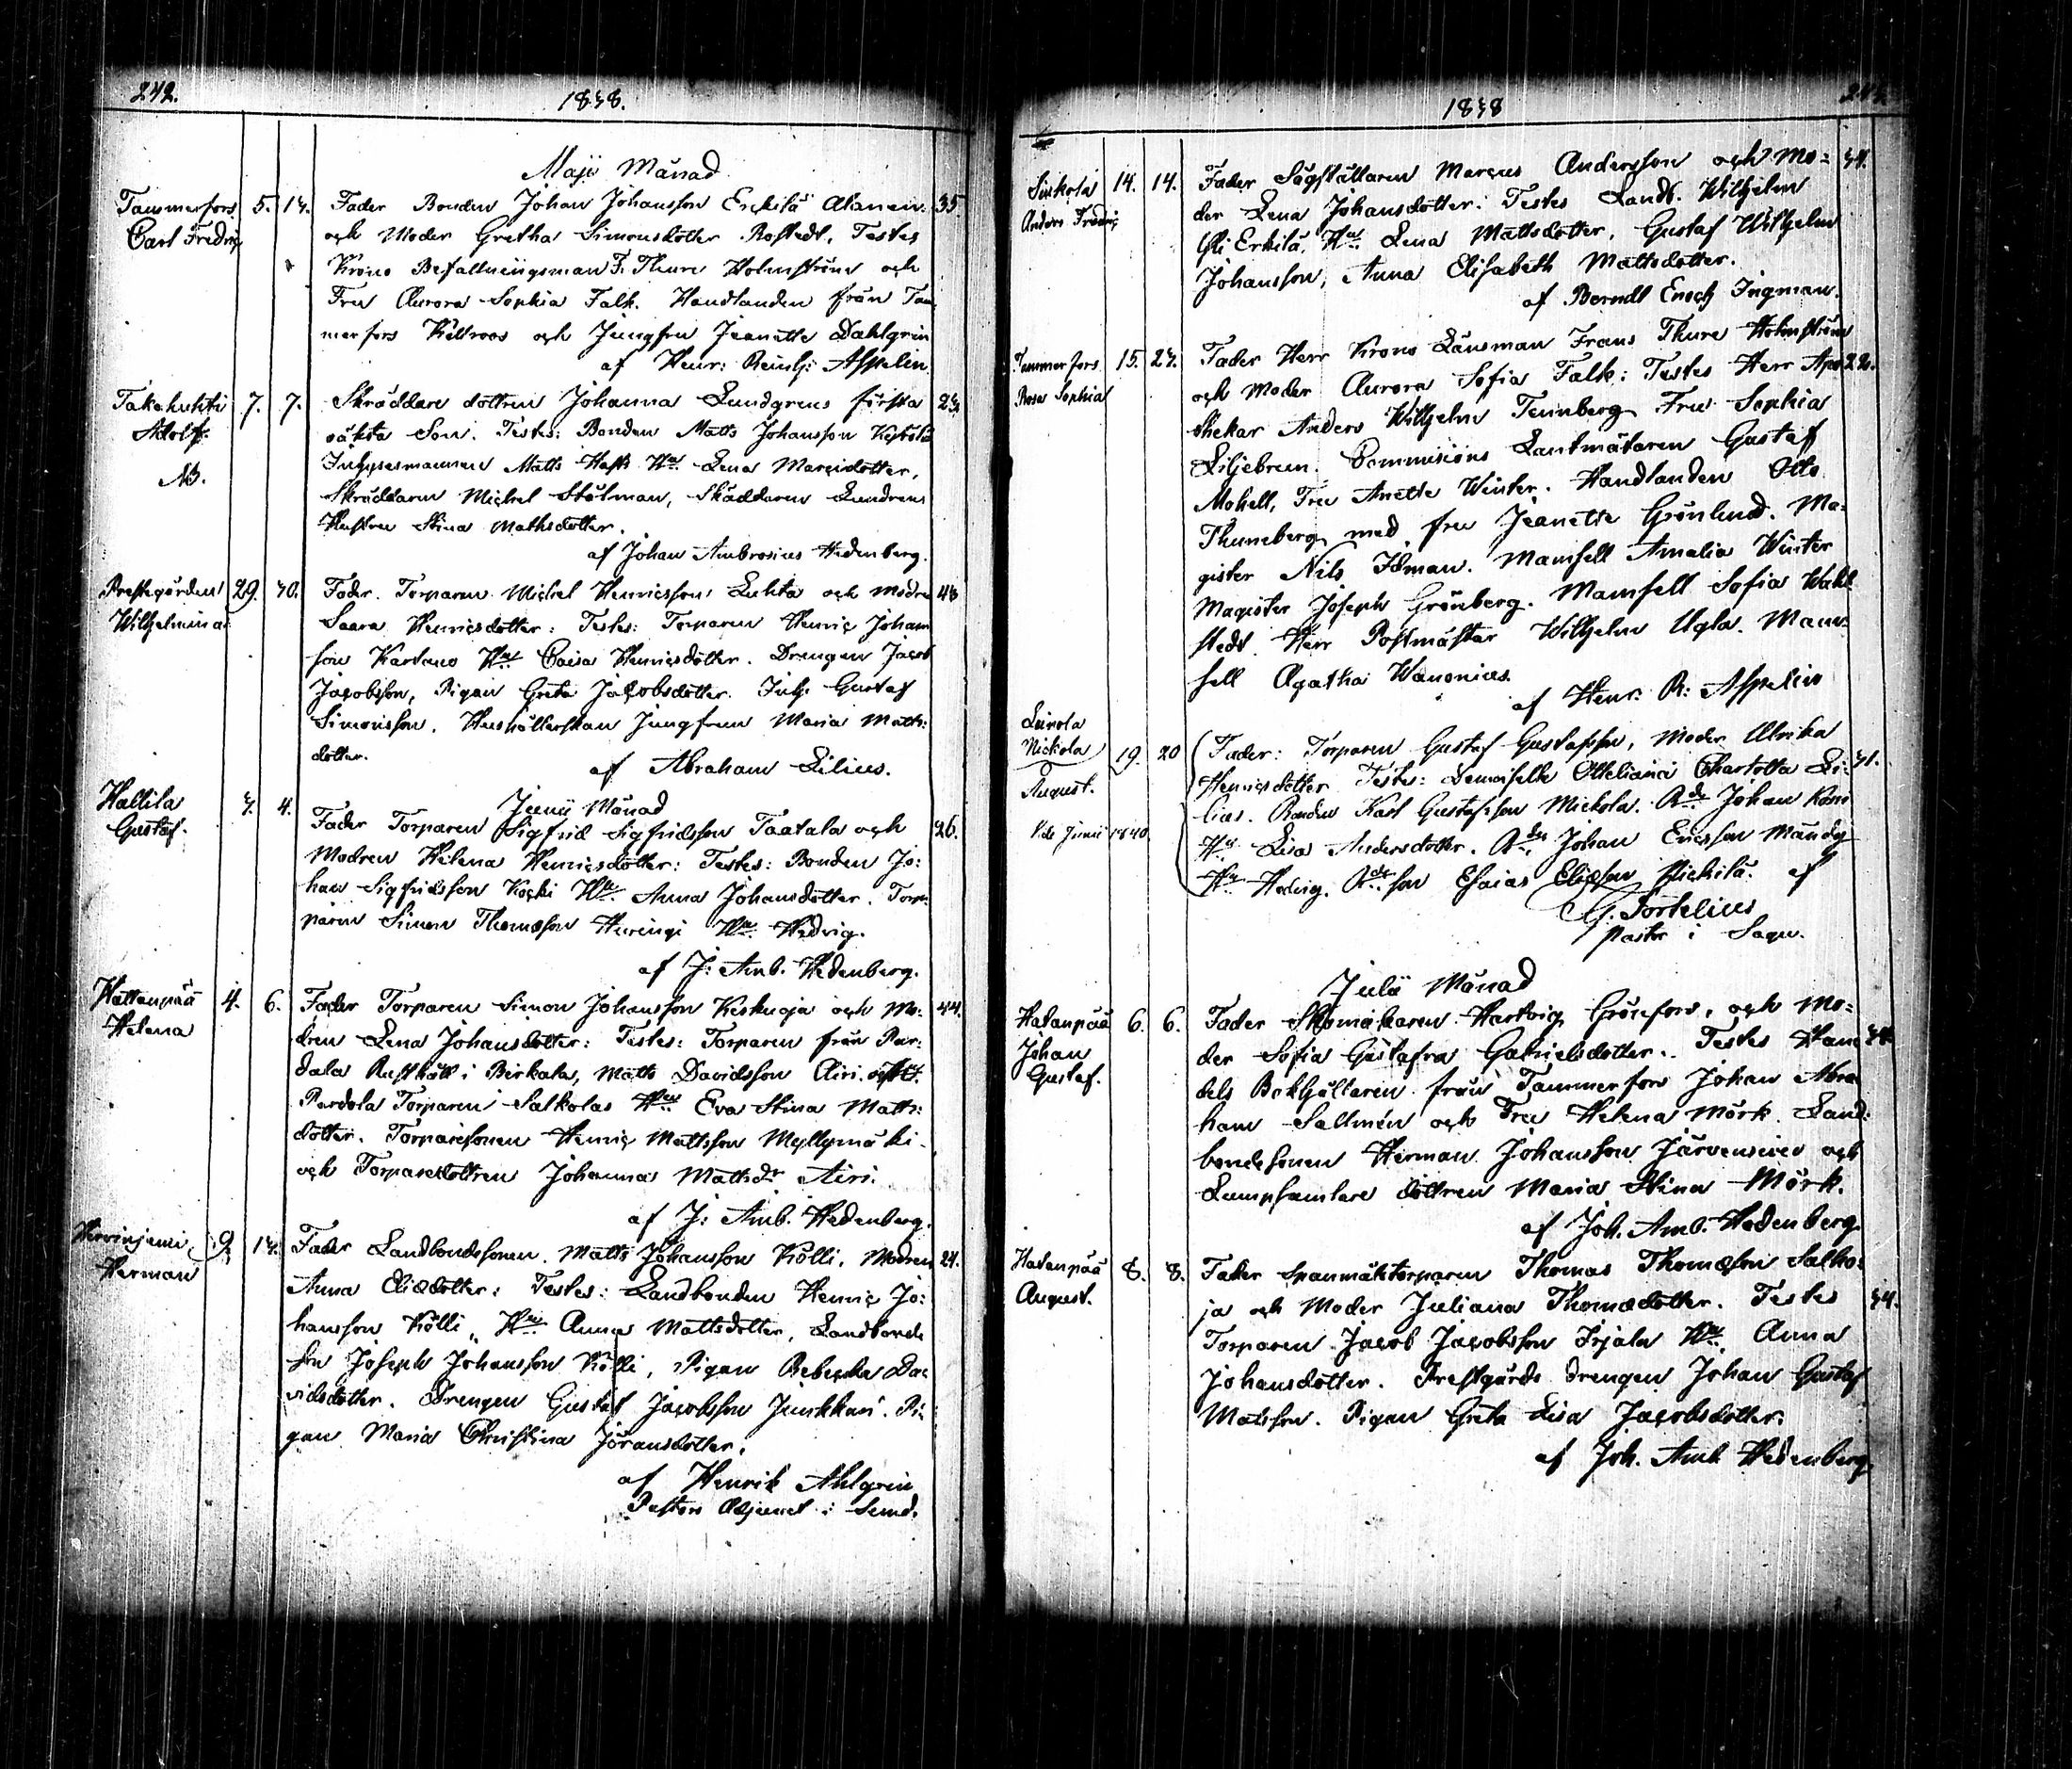 242.
1838.
Maji Månad
Tammerfors 5. 13. Fader Bonden Johan Johansson Erkilä Alanen 35
Carl Fredric och Moder Gretha Simonsdotter Rostedt, Testes
Krono Befallningsman F. Thure Holmström och
Fru Aurora Sophia Falk. Handlanden från Tam
merfors Killroos och Jungfru Jeanette Dahlgrén
af Henr: Reinh: Aspelin
Takahuhti 7. 7. Skräddare dottren Johanna Lundgrens första 23.
Adolf. oäkta Son. Testes: Bonden Matts Johansson
Inhysesmannen Matts Hu Lena Marcidotter,
NB. Skräddaren Michel Stålman, Skäddaren Lundrens
Hustru Stina Mathsdotter.
af Johan Ambrosius Hedenberg.
Prestgården 29. 30. Fader Torparen Michel Henricsson Luhta och Modren 43
Wilhelmina Saara Henricsdotter: Testes: Torparen Henric Johans
son Kartano Hu Caisa Henricsdotter. Drengen Jacob
Jacobsson, Pigan Greta Jacobsdotter. Inh: Gustaf
Simonsson. Hushållerskan Jungfrun Maria Matts:
dotter.
af Abraham Lilius.
Junii Månad
Hallila 3. 4. Fader Torparen Sigfrid Sigfridsson Taatala och 26.
Gustaf. Modren Helena Henricsdotter: Testes: Bonden Jo:
han Sigfridsson Koski Hu Anna Johansdotter. Torp:
paren Simon Thomasson Hu Hedvig.
af J: Amb. Hedenberg.
Hattanpää 4. 6. Fader Torparen Simon Johansson Keskuoja och Mo: 44.
Helena dren Lena Johansdotter: Testes: Torparen från Par:
dala Rusthåll i Birkala, Matts Davidsson Airi
Pardola Torparen Salkolas Hu Eva Stina Matts:
dotter. Torparesonen Henric Mattsson Myllymäki
och Torparedottren Johanna Mattsdr Airi.
af J: Amb. Hedenberg.
9. 13. Fader Landbondssonen Matts Johansson Kölli, Modren 24.
Herman Anna Eliædotter: Testes: Landbonden Henric Jo:
hansson Kölli, Hu Anna Mattsdotter, Landbonde
Son Joseph Johansson Kölli, Pigan Rebecka Da:
vidsdotter. Drengen Gustaf Jacobsson Junkkari. Pi:
gan Maria Christina Jöransdotter.
af Henrik Ahlgrén
Pastors Adjunct i
1838
14. 14. Fader Marcus Andersson och Mo: 34.
Anders Fredric der Lena Johansdotter: Testes Landb. Wilhelm
Erkilä, Hu Lena Mattsdotter, Gustaf Wilhelm
Johansson, Anna Elisabeth Mattsdotter.
af Berndt Enoch Ingman.
Tammerfors 15. 23. Fader Herr Krono Länsman Frans Thure Holmström
Rosa Sophia och Moder Aurora Sofia Falk: Testes Herr Apo 22.
thekar Anders Wilhelm Tennberg Fru Sophia
Liljebrun. Commisions Lantmätaren Gustaf
Mohell, Fru Anette Winter. Handlanden Otto
Thuneberg med fru Jeanette Grönlund. Ma:
gister Nils Idman. Mamsell Amalia Winter
Magister Joseph Grönberg. Mamsell Sofia Wahl
stedt. Herr Postmästar Wilhelm Ugla. Mam:
sell Agatha Wanonius.
af Henr: R: Aspelin
Nickola 19. 20 Fader: Torparen Gustaf Gustafsson, Moder Ulrika 31.
August. Henricsdotter Testes: Demoiselle Charlotta Li:
lius. Bonden Karl Gustafsson Mickola. Johan
Junii 1840 Hu Lisa Andersdotter. Johan Ericsson
Hu Hedvig. son Esaias Eliæson af
G. Fortelius
Pastor i Sagu.
Julii Månad
Hatanpää 6. 6. Fader Skomakaren Hartvig Grönfors, och Mo:
Johan der Sofia Gustafva Gabrielsdotter. Testes Han
Gustaf. dels Bokhållaren från Tammerfors Johan Abra
ham Sallmén och Fru Helena Mörk. Land:
bondesonen Herman Johansson Järvensivu och
Lumpsamlare dottren Maria Stina Mörk.
af Joh. Amb: Hedenberg
Hatanpää 8. 8. Fader Spanmålstorparen Thomas Thomasson Salko:
August. ja och Moder Juliana Thomædotter. Testes 34.
Torparen Jacob Jacobsson Irjala Hu Anna
Johansdotter. Prestgårds drengen Johan Gustaf
Matsson. Pigan Greta Lisa Jacobsdotter.
af Joh. Amb Hedenberg